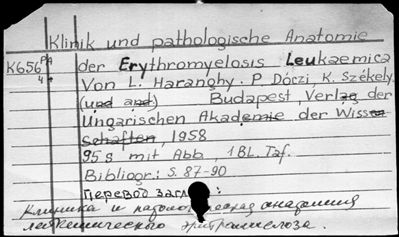 Klinik und pathologische Anatomie
K656 PA der Erythromyelosis Leukaemica
4 Von L. Haranghy. P. Dóczi, K. Székely
(und and) Budapest, Verlag der
Ungarischen Akademie der Wissen
schaften, 1958
95 S mit Abb, 1 BL. Taf.
Bibliogr: S. 87-90
Перевод загл :
Клиника и патологическая анатомия
лейкемического эритромиелоза.